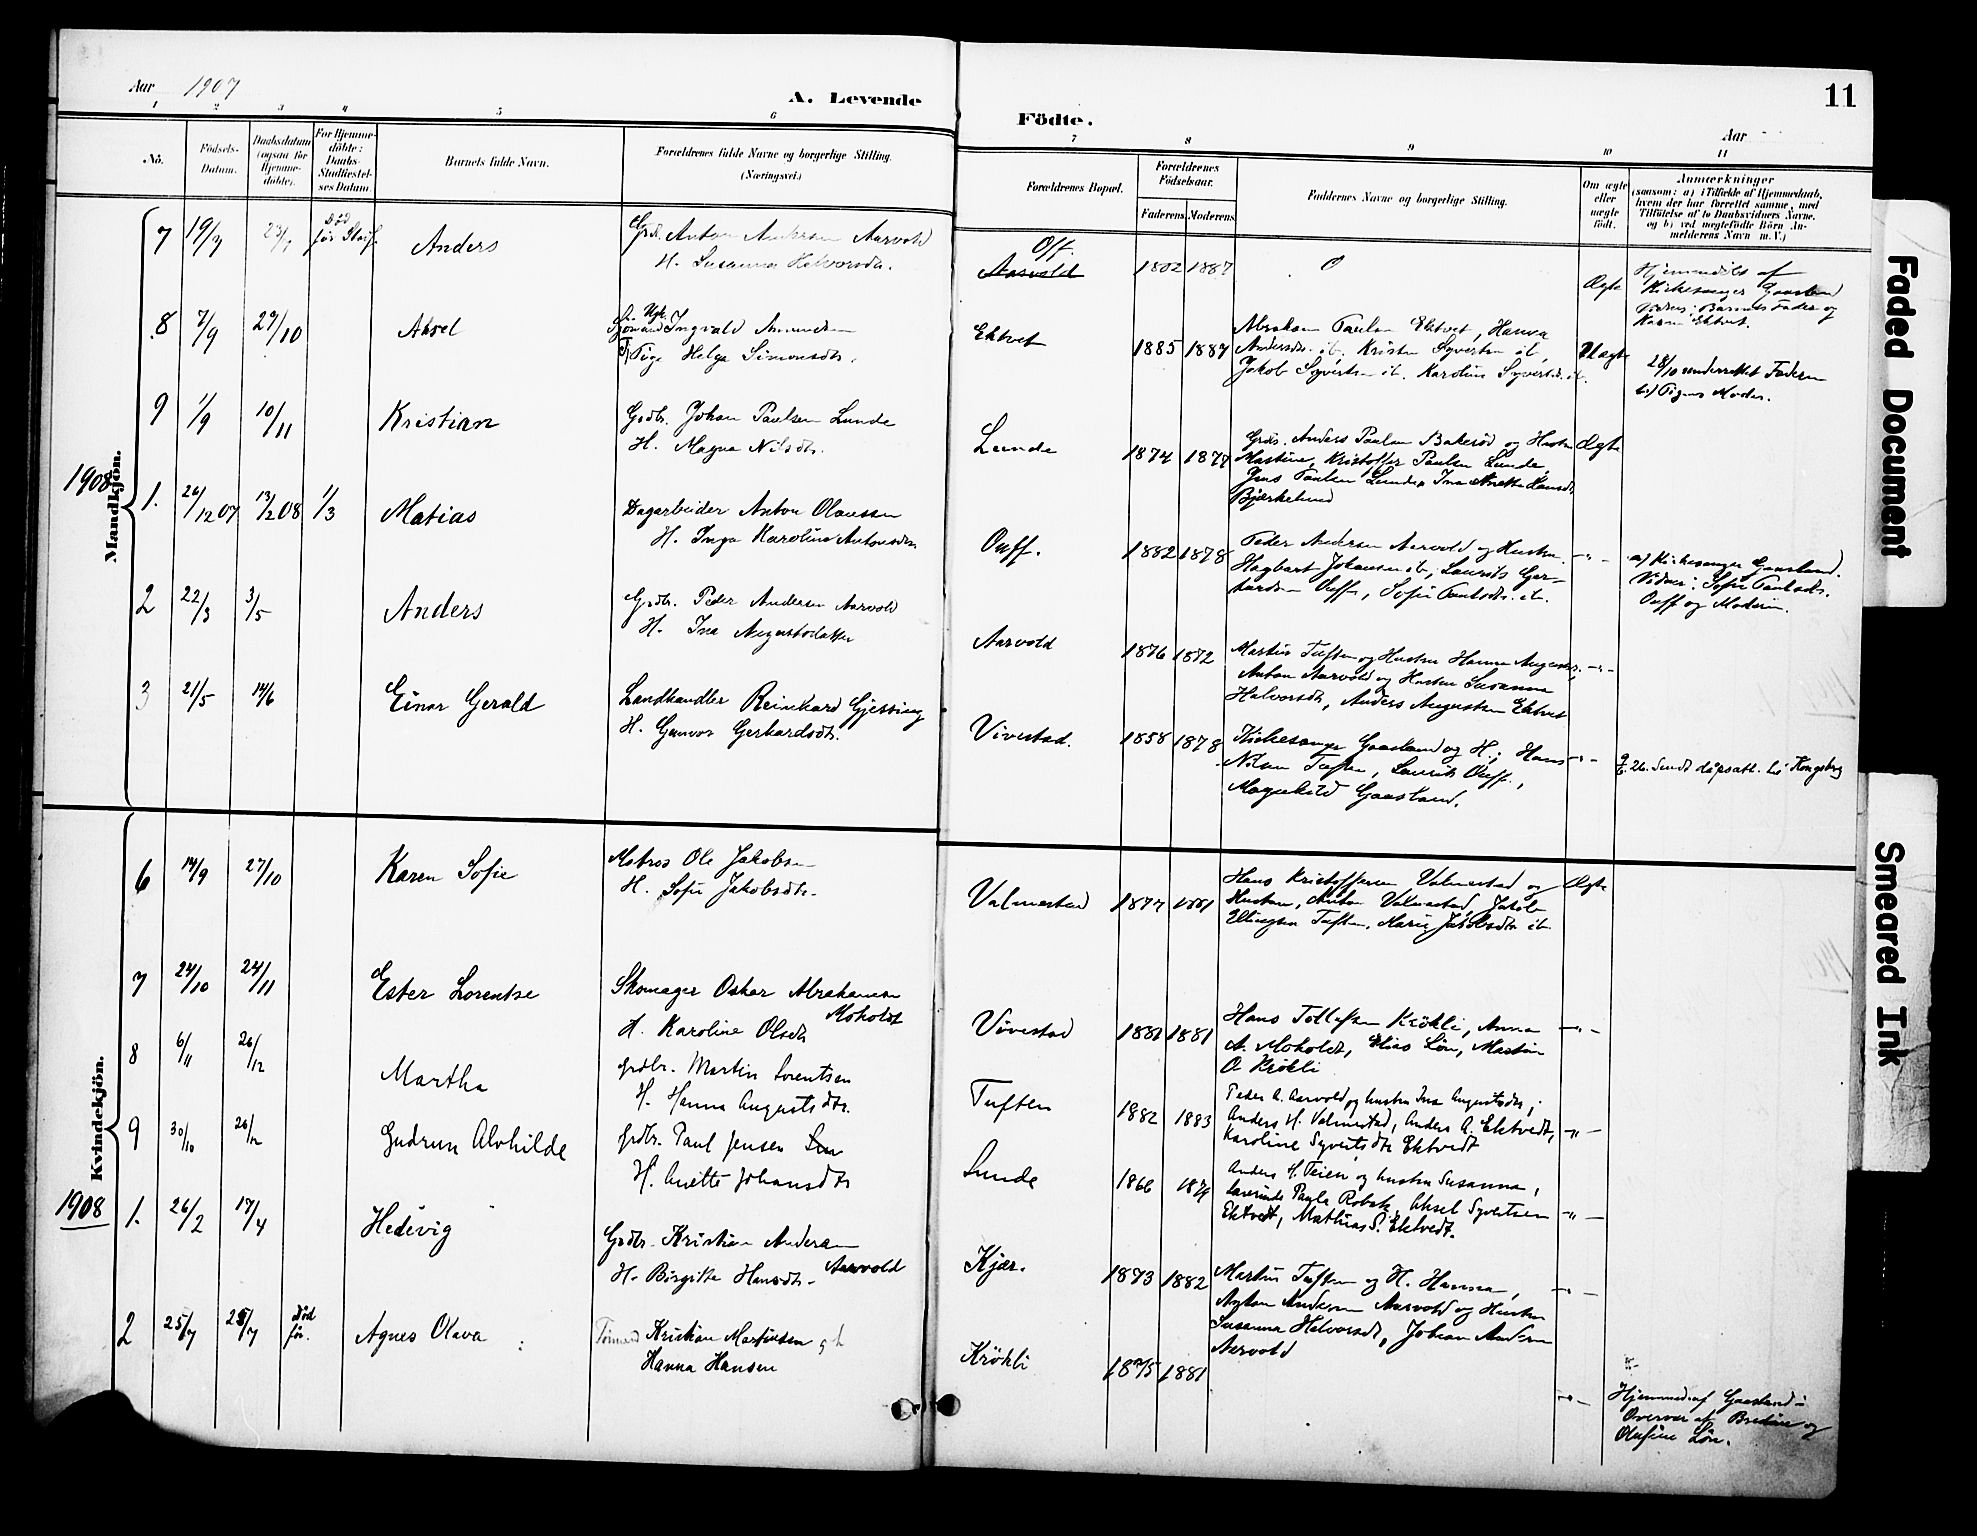 Aar 1907
A. Levende
Födte.
Aar
11
1 2 3 4 5 6 7 8 9 10 11
No.
Födsels-
Datum.
Daabsdatum
(ogsaa for
Hjemme-
döbte).
For Hjemme-
döbte:
Daabs-
Stadfæstel-
ses Datum.
Barnets fulde Navn.
Forældrenes fulde Navne og borgerlige Stilling.
(Næringsvei.)
Forældrenes Bopæl.
Forældrenes
Födselsaar.
Faderens Moderens
Faddernes Navne og borgerlige Stilling.
Om ægte
eller
uægte
födt.
Anmærkninger
(saasom: a) i Tilfælde af Hjemmedaab,
hvem der har forrettet samme, med
Tilföielse af to Daabsvidners Navne.
og b) ved uægtefödte Börn An-
melderens Navn m. V.)
Mandkjön.
7 19/7 Död för Stadf. Anders
Grdb. Anton Andersen Aarvold
H. Susanna Halvorsdtr.
Öff.
Aarvold
1882 1887 O Ægte
Hjemmedöbt af
Kirkesanger Gaasland
Vidner: Barnets Fader og
Karen Ektvet.
8 7/9 27/10 Aksel
Ugk. Sjömand Ingvald Amundsen
Pige Helga Simonsdtr.
Ektvet 1885 1887
Abraham Paulsen Ektvet, Hanna
Andersdtr. ib. Kristen Syvertsen ib,
Jakob Syvertsen ib. Karoline Syvertsd. ib.
Uægte
28/10 underrettet Faderen
b) Pigens Moder.
9 1/9 10/11 Kristian
Grdbr. Johan Paulsen Lunde
H. Magna Nilsdtr.
Lunde 1874 1877
Grdbr. Anders Paulsen Bakeröd og Hustru
Martine, Kristoffer Paulsen Lunde,
Jens Paulsen Lunde, Ina Anette Hansdtr
Bjærkelund
Ægte
1908
1. 26/12 07 13/2 08 1/3 Matias
Dagarbeider Anton Olaussen
H. Inga Karoline Antonsdtr.
Öuff. 1882 1878
Peder Andersen Aarvold og Hustru
Hagbart Johansen ib, Laurits Ger-
hardsen Öuff, Sofie Paulsdtr. ib.
-"-
a) Kirkesanger Gaasland.
Vidner: Sofie Paulsdtr.
Öuff og Moderen.
2 22/3 3/5 Anders
Grdbr. Peder Andersen Aarvold
H. Ina Augustsdatter
Aarvold 1876 1872
Martin Tuften og Hustru Hanna Augustsd.,
Anton Aarvold og Hustru Susanna
Halvorsdtr, Anders Augustsen Ektvet
-"-
3 21/5 14/6 Einar Gerald
Landhandler Reinhard Gjessing
H. Gunvor Gerhardsdtr.
Vivestad. 1858 1878
Kirkesanger Gaasland og H., Hans
Nilsen Tuften, Laurits Öuff,
Magnhild Gaasland.
-"-
9/6 26. Sendt dåpsatt. til Kongsberg
Kvindekjön.
6 14/9 27/10 Karen Sofie
Matros Ole Jakobsen
H. Sofie Jakobsdtr.
Valmestad 1877 1881
Hans Kristoffersen Valmestad og
Hustru, Anton Valmestad, Jakob
Ellingsen Tuften, Marie Jakobsdtr ib.
Ægte
7 24/10 24/11 Ester Lorentse
Skomager Oskar Abrahamsen
Moholdt
H. Karoline Olsdtr
Vivestad 1881 1881
Hans Tollefsen Krökli, Anna
A. Moholdt, Elias Lön, Martin
O. Krökli
-"-
8 6/11 26/12 Martha
Grdbr. Martin Lorentsen
H. Hanna Augustsdtr.
Tuften 1882 1883
Peder A. Aarvold og hustru Ina Augustsdtr.,
Anders H. Valmestad, Anders A. Ektvedt,
Karoline Syvertsdtr Ektvedt
-"-
9 30/10 26/12 Gudrun Alvhilde
Grdbr. Paul Jensen
H. Anette Johansdtr
Lunde 1866 1874
Anders H. Teien og hustru Susanna,
Paula Robak, Aksel Syvertsen
Ektvedt, Mathias S. Ektvedt.
-"-
1908
1. 26/2 17/4 Hedevig
Grdbr. Kristian Andersen
Aarvold
H. Birgitte Hansdtr.
Kjær. 1873 1882
Martin Tuften og H. Hanna,
Anton Andersen Aarvold og Hustru
Susanna Halvorsdtr, Johan Andersen
Aarvold
-"-
2 25/7 25/7 Död för. Agnes Olava
Tömmerm. Kristian Martinsen og h
Hanna Hansen
Krökli 1875 1881
-"-
Hjemmed. af Gaasland i
Overvær af Bredine og
Olufine Lön.
Faded Document
Smeared Ink